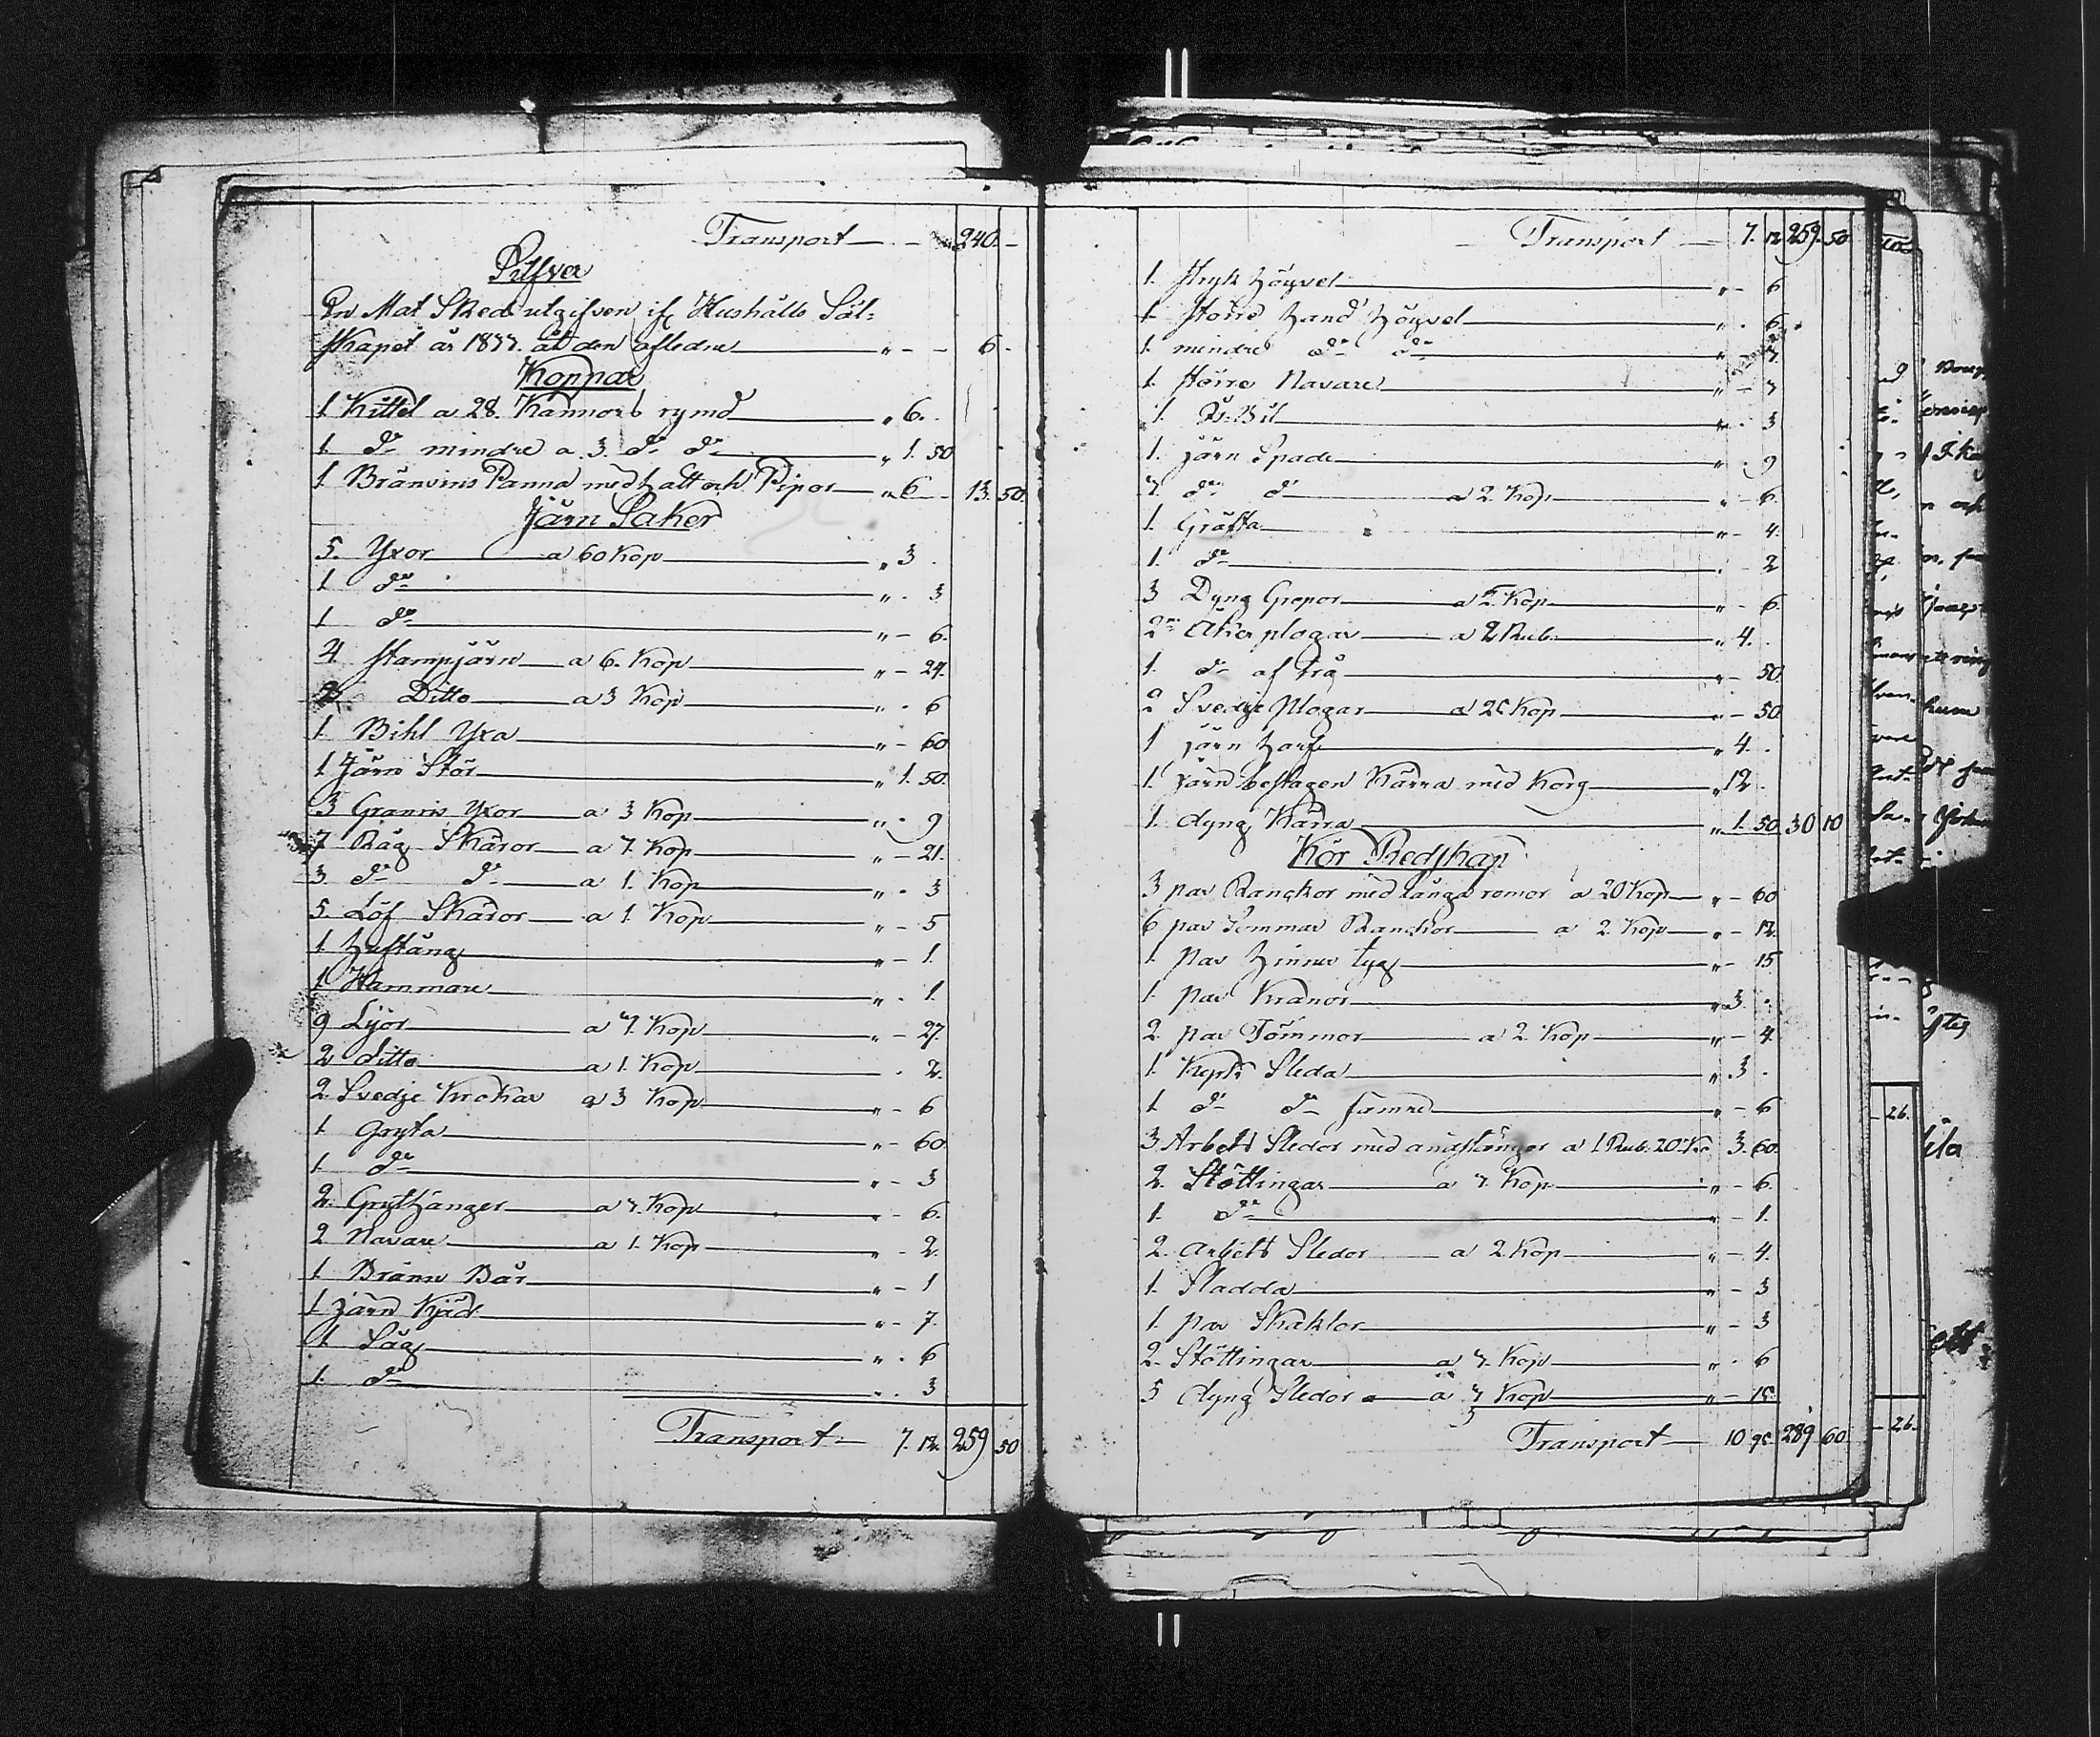 Transport — " 240. –
Silfver
En Mat Sked utgifven af Hushålls Säl-
skapet år 1833. åt den afledne " – – 6 –
Koppar
1 Kittel a 28. Kannors rymd " 6. .
1. do mindre a 3. do do " 1. 50
1 Bränvins Panna med hatt och Pipor " 6 – 13. 50.
Järn Saker
5. Yxor a 60 Kop " 3 .
1 do " . 3
1 do " – 6.
4 Stampjärn a 6. Kop " – 24.
2 Ditto a 3 Kop " . 6
1 Bihl Yxa " – 60
1 Järn Stör " 1. 50.
3 Granris Yxor a 3 Kop " . 9
7 Råg Skäror a 3. Kop " – 21.
3. do do a 1. Kop " . 3
5. Löf Skäror a 1. Kop " – 5
1. Hoftång " – 1.
1 Hammare " . 1.
9 Lijor a 3. Kop " – 27.
2 ditto a 1. Kop . 2.
2. Svedje Krokar a 3 Kop " – 6
1 Gryta " – 60.
1 do " – 3
2. Grythänger a 3. Kop " – 6.
2 Navare a 1. Kop " – 2.
1 Bränn Bår " – 1
1. järn Kjäd " – 7.
1. Såg " . 6
1. do " . 3
Transport – 7. 12. 259 50
Transport — 7. 12 259. 50
1. Stryk Höyvel " – 6
1. Störrе Hand Höyvel " . 6.
1. mindre do do " 3.
1. Störrе Navare " – 3
1. Bil " . 3
1. järn Spade " . 9
3. do do a 2. Kop " – 6.
1. Gräfta " – 4.
1. do . – 2
3 Dyng Grepor a 2. Kop " – 6.
2 Åker plogar a 2 Rub. " 4. .
1. do af trä " – 50.
2 Svedje plogar a 25 Kop " – 50.
1 järn Harf " 4. .
1. Järn beslagen Kärra med Korg " 12
1. dyng Kärra " 1. 50. 30 10
Kör Redskap
3 par Ranckor med långa romor a 20 Kop " – 60
6 par Sommar Ranckor a 2. Kop " – 12.
1. par Hinner tyg " – 15
1. par Kranor " 3. .
2. par Tömmor a 2. Kop " – 4.
1. Kyrk Sleda " 3. .
1. do do sämre " – 6
3 Arbets Sledor med andstänger a 1 Rub. 20. Ko 3. 60.
2. Stöttingar a 3. Kop " – 6.
1. do " – 1.
2. arbets Sledor a 2. Kop " – 4.
1. Sladda " – 3
1. par Skaklor " – 3
2. Stöttingar a 3. Kop " . 6
5 dyng Sledor a 3 Kop " – 15.
Transport — 10 95. 289 60